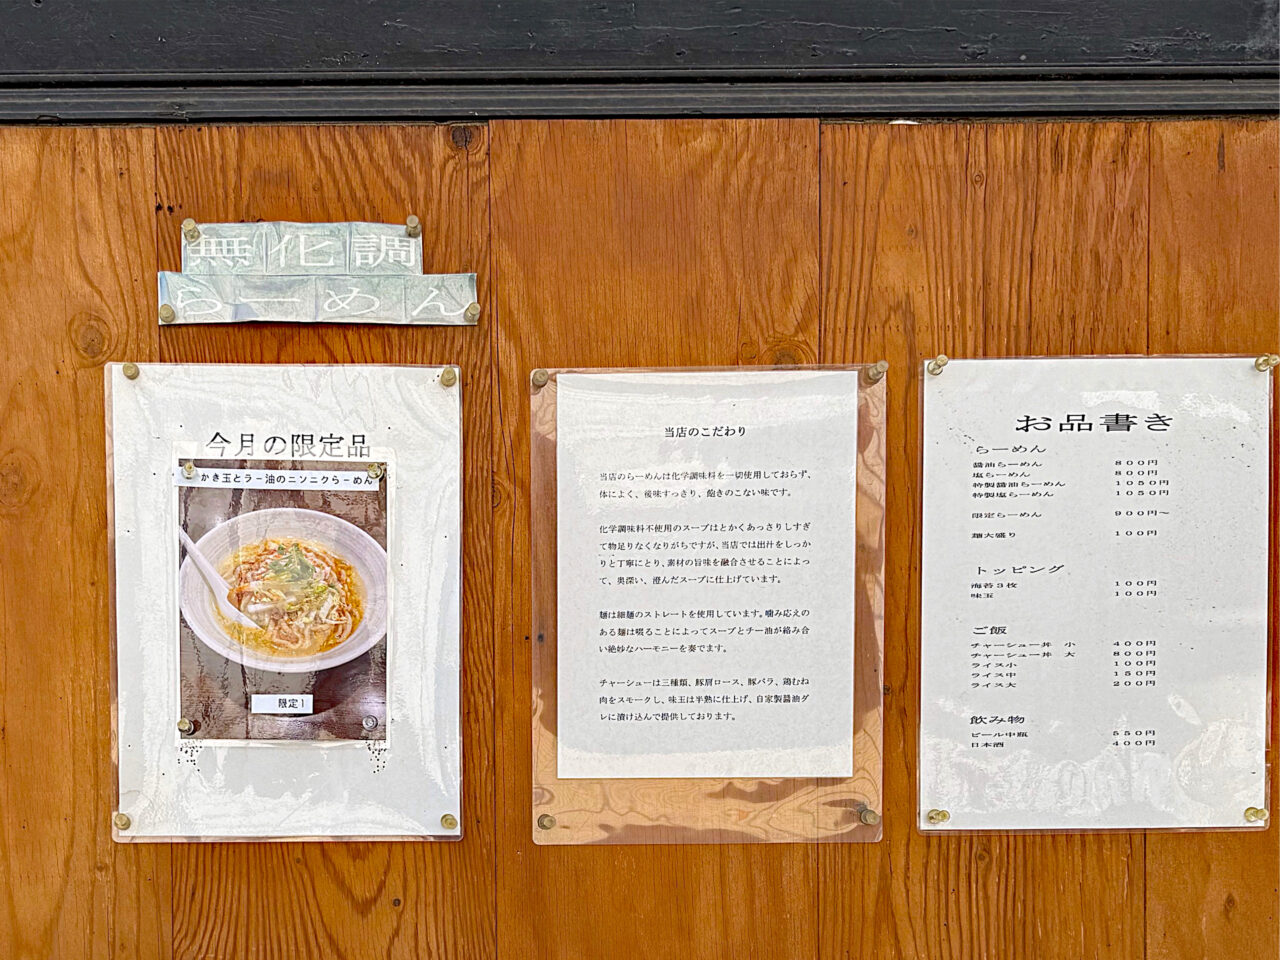 無化調
らーめん
今月の限定品
かき玉とラー油のニンニクらーめん
限定1
当店のこだわり
当店のらーめんは化学調味料を一切使用しておらず、
体によく、後味すっきり、飽きのこない味です。
化学調味料不使用のスープはとかくあっさりしすぎ
て物足りなくなりがちですが、当店では出汁をしっか
りと丁寧にとり、素材の旨味を融合させることによっ
て、奥深い、澄んだスープに仕上げています。
麺は細麺のストレートを使用しています。噛み応えの
ある麺は啜ることによってスープとチー油が絡み合
い絶妙なハーモニーを奏でます。
チャーシューは三種類、豚肩ロース、豚バラ、鶏むね
肉をスモークし、味玉は半熟に仕上げ、自家製醤油ダ
レに漬け込んで提供しております。
お品書き
らーめん
醤油らーめん 800円
塩らーめん 800円
特製醤油らーめん 1050円
特製塩らーめん 1050円
限定らーめん 900円～
麺大盛り 100円
トッピング
海苔3枚 100円
味玉 100円
ご飯
チャーシュー丼 小 400円
チャーシュー丼 大 800円
ライス小 100円
ライス中 150円
ライス大 200円
飲み物
ビール中瓶 550円
日本酒 400円